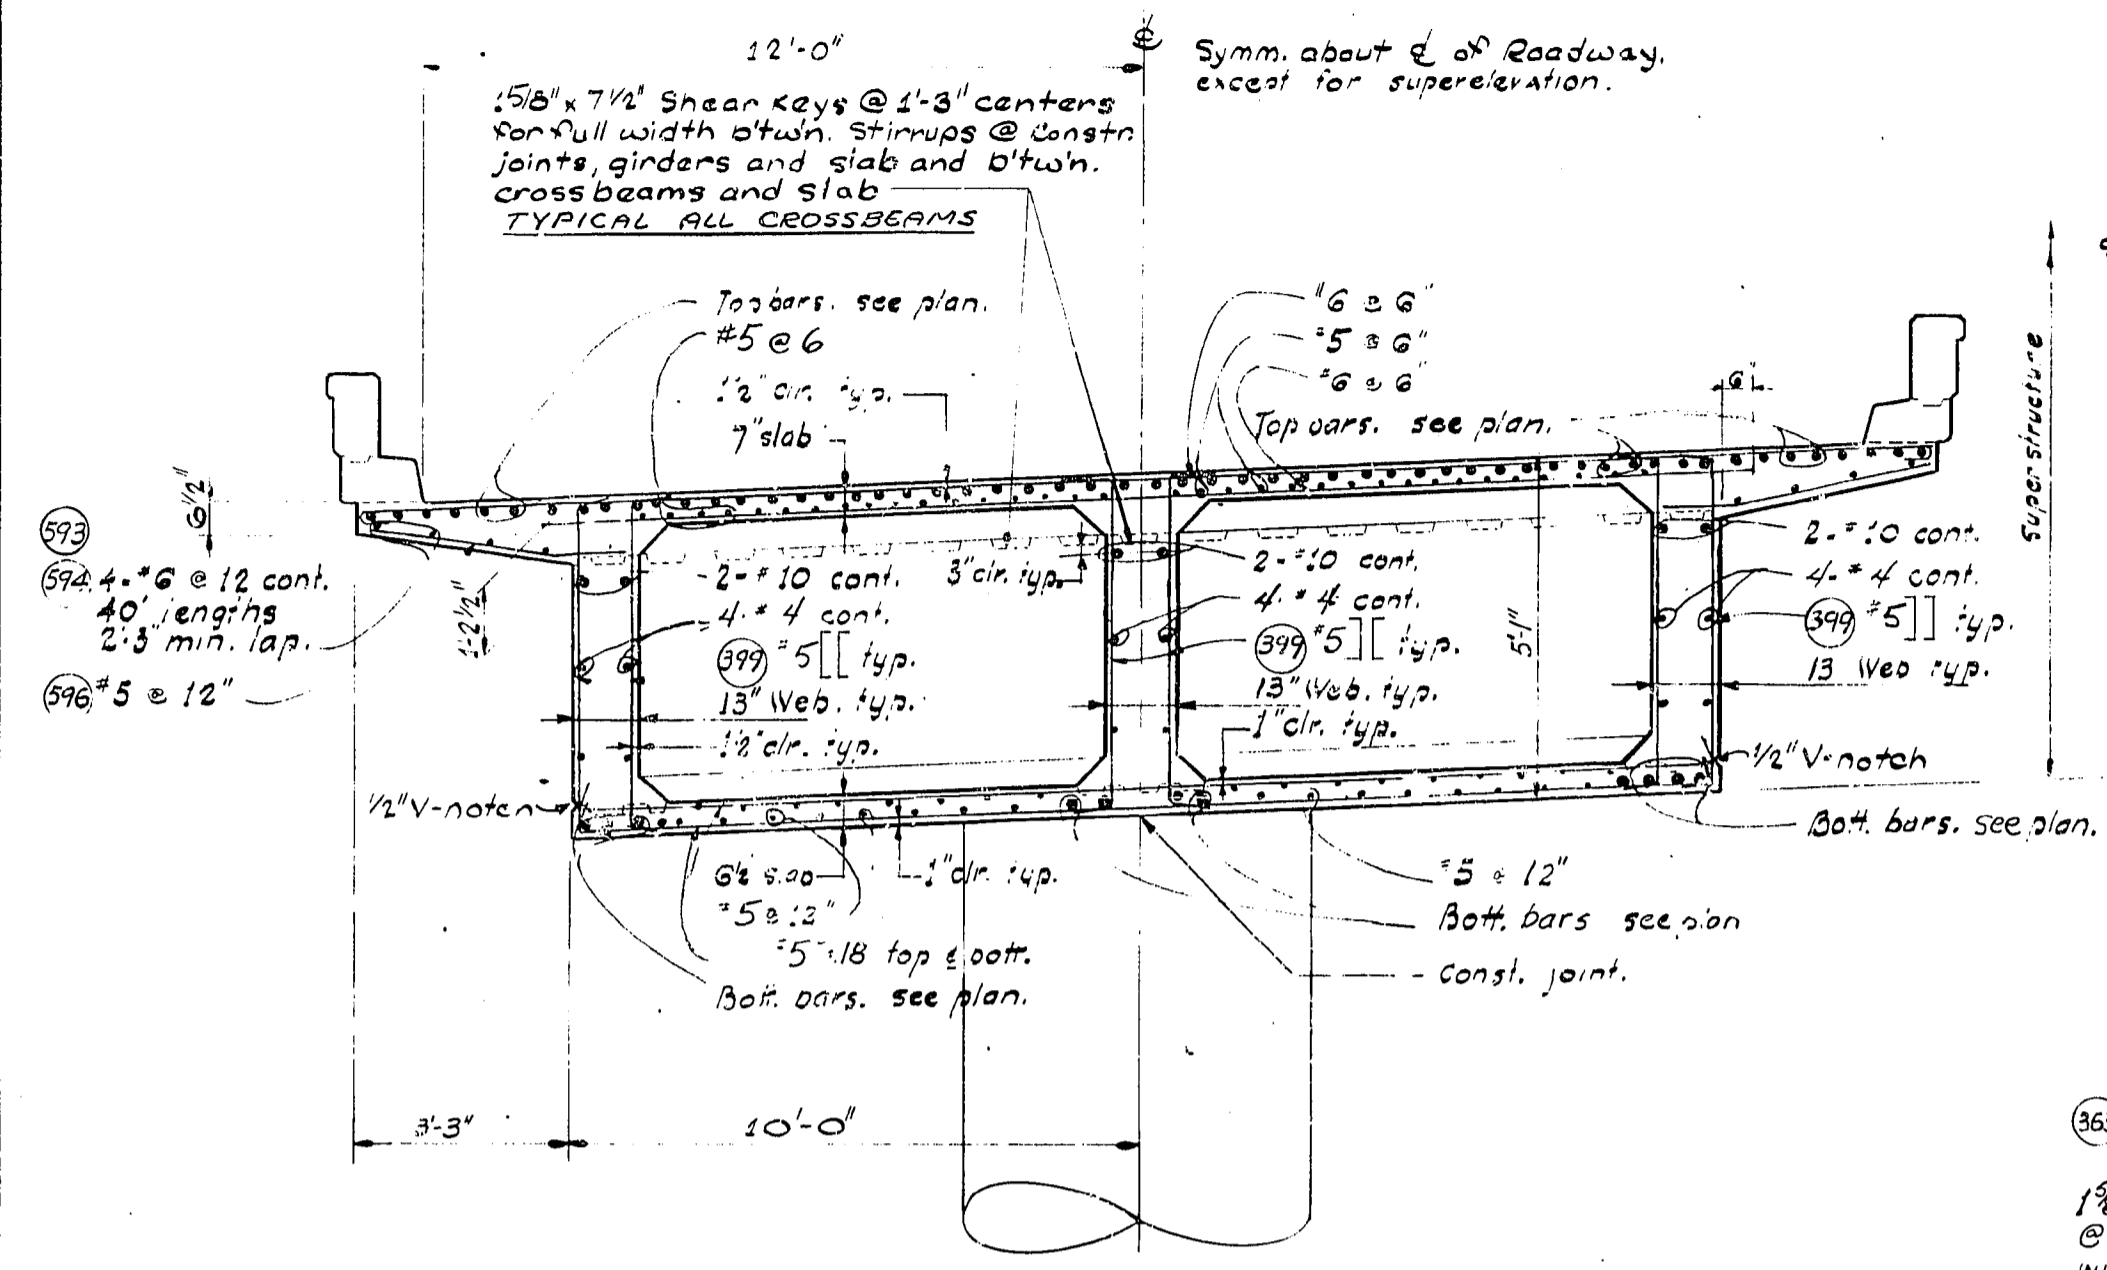 12'-0"
Symm. about ℄ of Roadway.
except for superelevation.
15/8" x 7 1/2" Shear Keys @ 1'-3" centers
for full width b'tw'n. Stirrups @ Constr.
joints, girders and slab and b'tw'n.
crossbeams and slab
TYPICAL ALL CROSSBEAMS
Top bars. see plan.
#5 @ 6
clr. typ.
7" slab
#6 @ 6"
#5 @ 6"
#6 @ 6"
Top bars. see plan.
6"
Superstructure
6 1/2"
593
594 4-#6 @ 12 cont.
40' lengths
2'-3" min. lap.
596 #5 @ 12"
1'-2 1/2"
2-#10 cont.
4-#4 cont.
399 #5 [[ typ.
13" Web. typ.
clr. typ.
3" clr. typ.
2-#10 cont.
4-#4 cont.
399 #5 ][ typ.
13" Web. typ.
1" clr. typ.
5'-1"
2-#10 cont.
4-#4 cont.
399 #5 ]] typ.
13 Web typ.
1/2" V-notch
1/2" V-notch
Bott. bars. see plan.
6 1/2 slab
1" clr. typ.
#5 @ 12"
#5 18 top & bott.
Bott. bars. see plan.
#5 @ 12"
Bott. bars see plan
Const. joint.
3'-3"
10'-0"
363
@